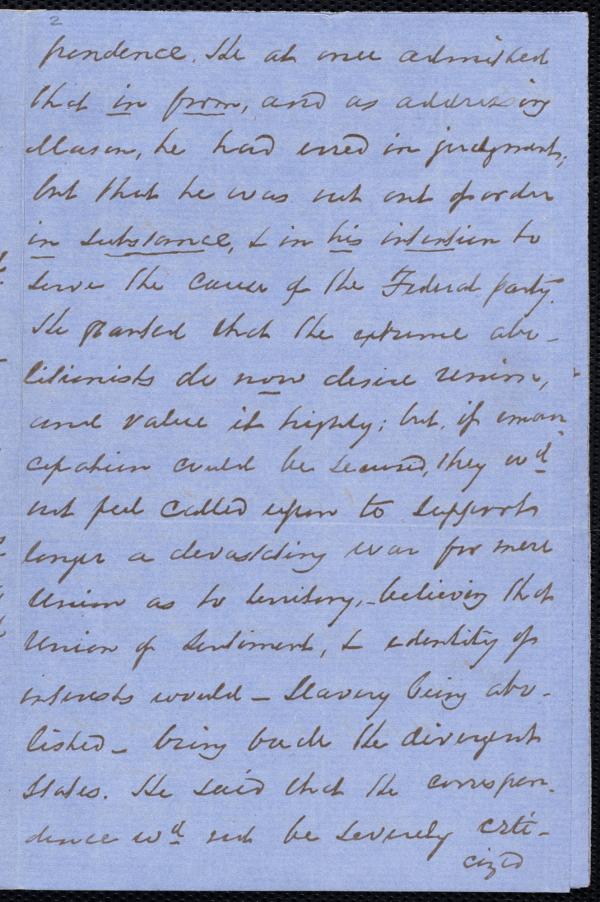 2
pondence. He at once admitted
that in form, and as addressing
Mason, he had erred in judgment;
but that he was not out of order
in substance, & in his intention to
serve the cause of the Federal party.
He granted that the extreme abo-
litionists do now desire union,
and value it highly; but, if eman
cipation could be secured, they wd
not feel called upon to support
longer a devastating war for mere
Union as to territory, - believing that
Union of sentiment, & identity of
interests would - Slavery being abo-
lished - bring back the divergent
States. He said that the correspon-
dence wd not be severely criti-
cized